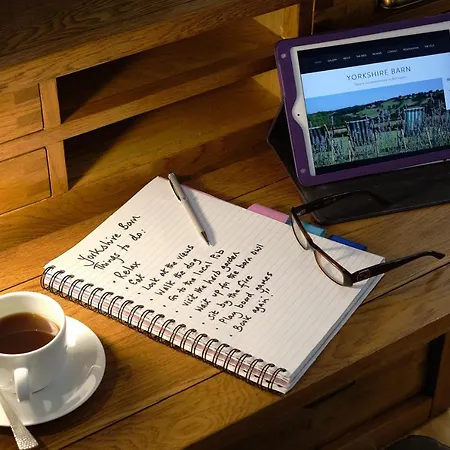 YORKSHIRE BARN
Yorkshire Barn
Things to do:
Relax
• Eat
• Look at the views
• Walk the dog
• Go to the local Pub
• Visit the herb garden
• Wait up for the barn owl
• Sit by the fire
• Play board games
Book again!!